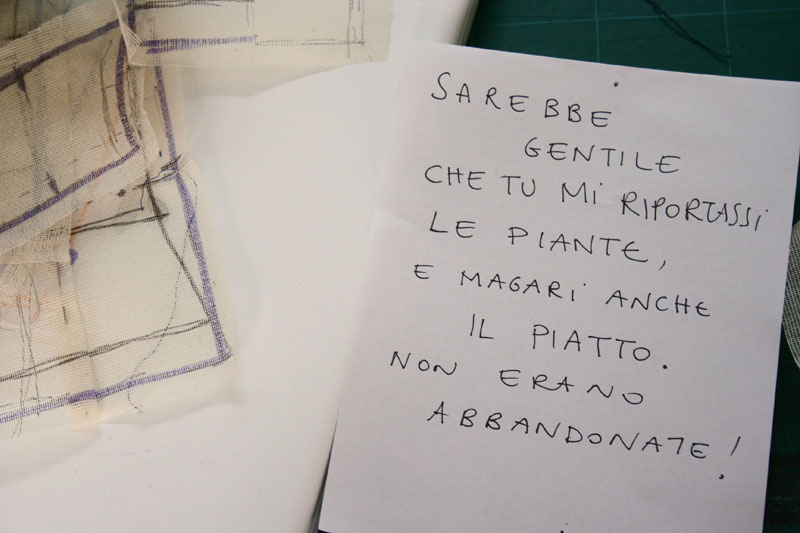 SAREBBE
GENTILE
CHE TU MI RIPORTASSI
LE PIANTE,
E MAGARI ANCHE
IL PIATTO.
NON ERANO
ABBANDONATE!